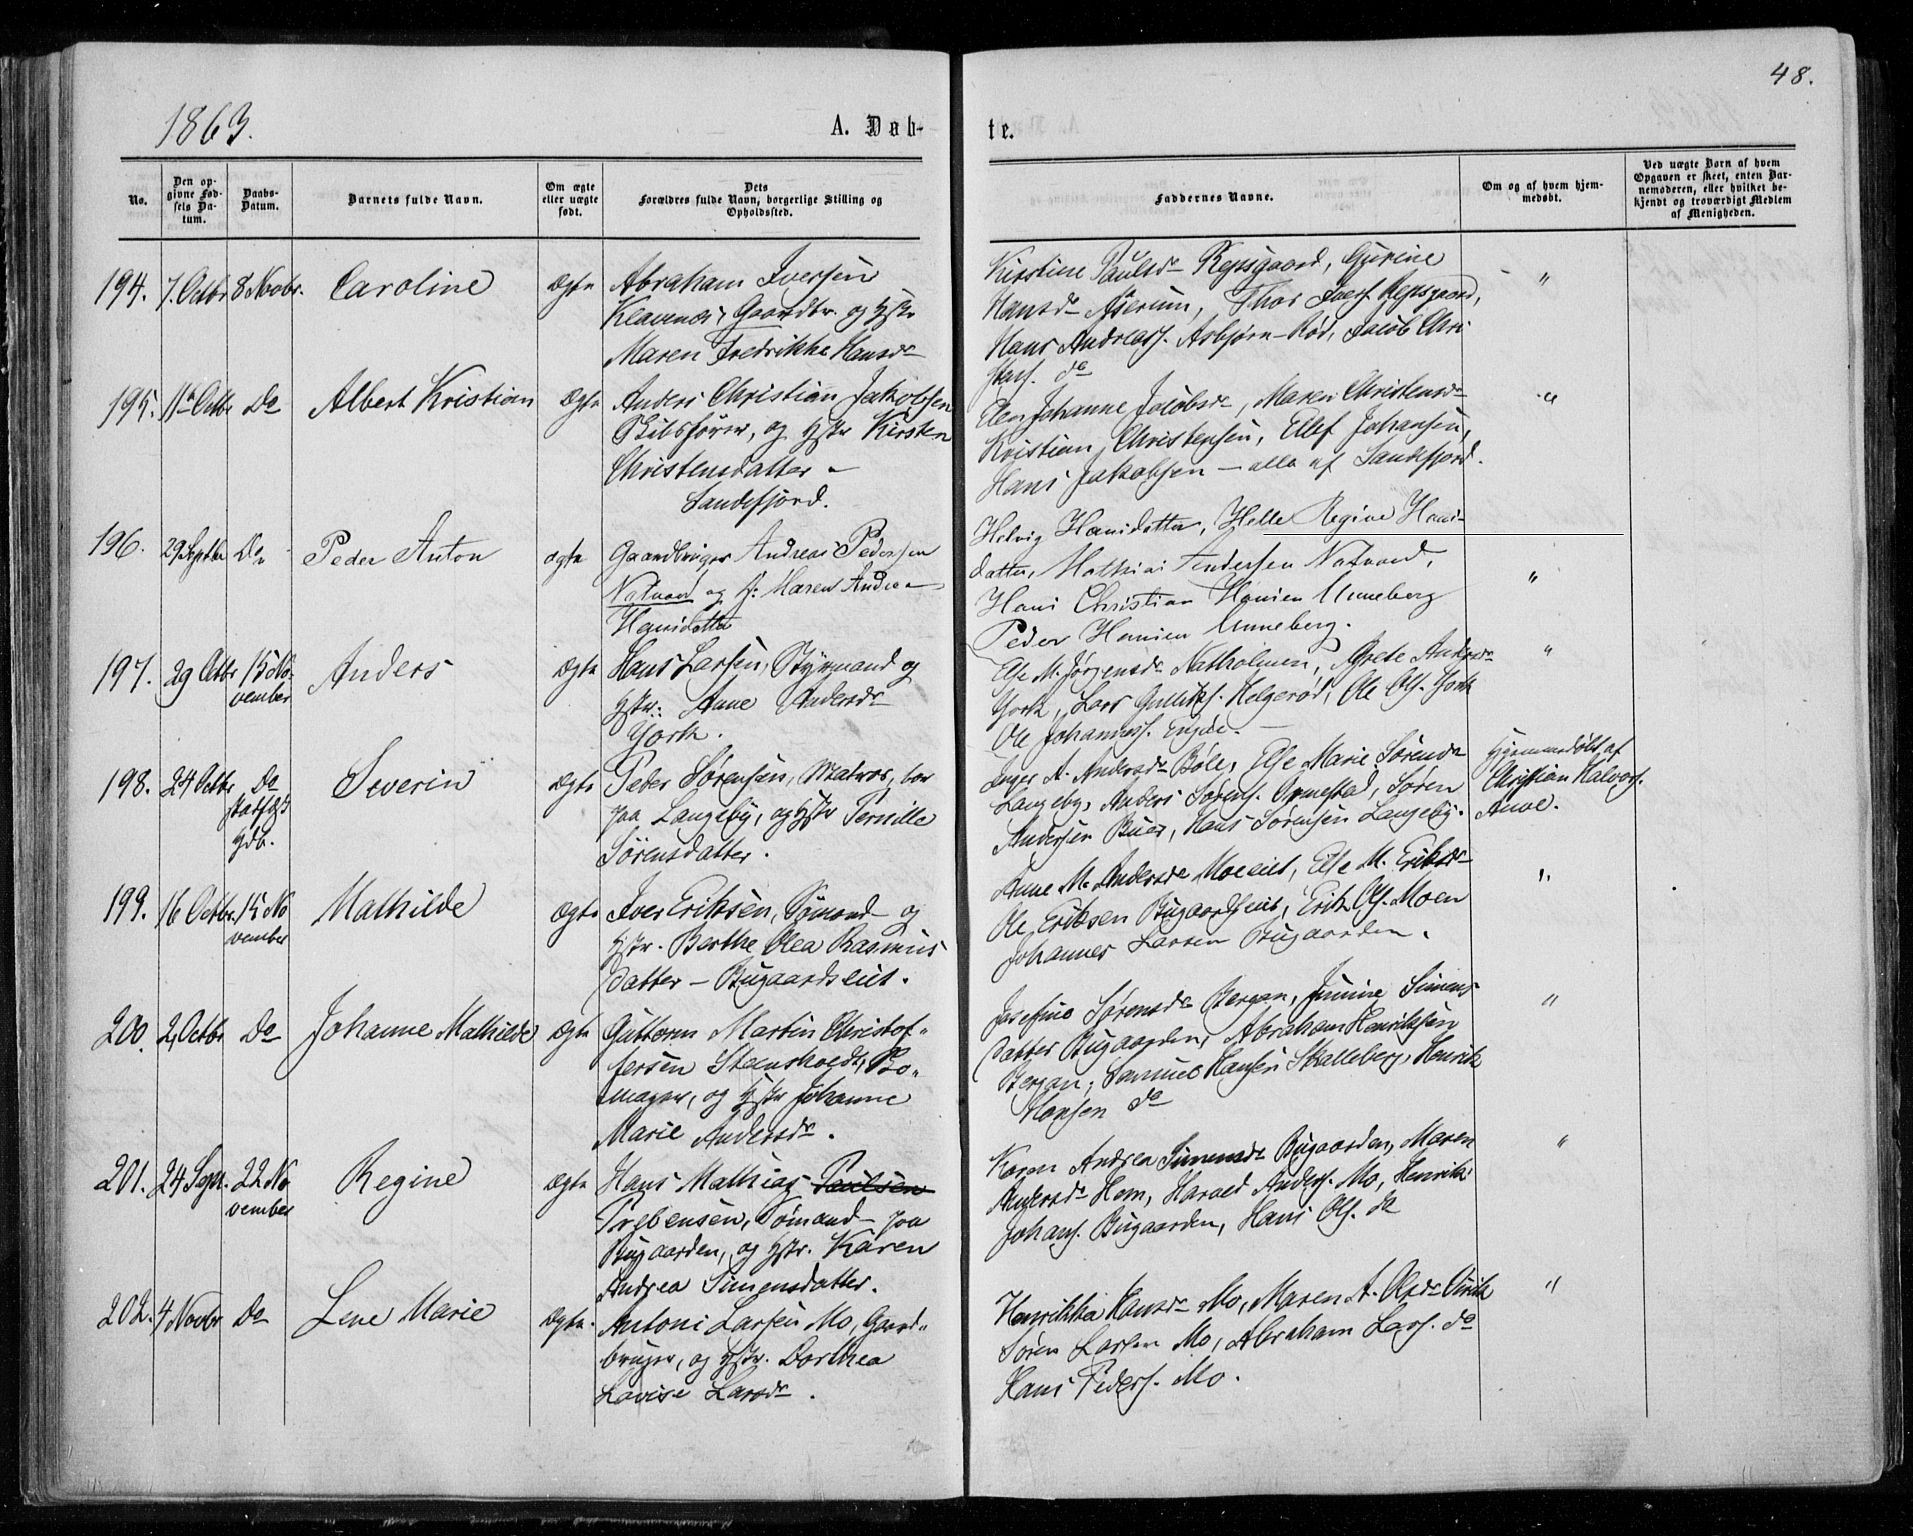 48.
1863.
A. Døb-
te.
No.
Den op-
givne Fød-
sels Da-
tum.
Daabs-
Datum.
Barnets fulde Navn.
Om ægte
eller uægte
født.
Dets
Forældres fulde Navn, borgerlige Stilling og
Opholdssted.
Faddernes Navne.
Om og af hvem hjem-
medøbt.
Ved uægte Børn af hvem
Opgaven er skeet, enten Bar-
nemoderen, eller hvilket be-
kjendt og troværdigt Medlem
af Menigheden.
194. 7 Octbr 8 Novbr. Caroline ægte
Abraham Iversen
Klavenæs, Gaardbr. og Hstr
Maren Fredrikke Hansdr
Kirstine Paulsdr Repsgaard, Gurine
Hansdr Aaserum, Thor Ivers. Repsgaard,
Hans Andreass. Asbjørn-Rød, Jacob Chri
stens. do
"
195. 11te Octbr Do Albert Kristian ægte
Anders Christian Jakobsen
Skibsfører, og Hstr Kirsten
Christensdatter -
Sandefjord.
Elen Johanne Jacobsdr, Maren Christensdr
Kristian Christensen, Ellef Johansen,
Hans Jakobsen - alle af Sandefjord.
"
196. 29 Septbr Do Peder Anton ægte
Gaardbruger Andreas Pedersen
Natvad og H: Maren Andrea
Hansdatter
Helvig Hansdatter, Helle Regine Hans-
datter, Mathias Andersen Natvad,
Hans Christian Hansen Unneberg
Peder Hansen Unneberg.
"
197. 29 Octbr 15 No
vember Anders ægte
Hans Larsen, Styrmand og
Hstr: Anne Andersdr
York.
Else M. Jørgensdr Natholmen, Grete Andersdr
York, Lars Gulliks. Helgerød, Ole Ols. York
Ole Johanness. Engøe. -
"
198. 24 Octbr Do
Severin ægte
Peder Sørensen, Matros, bor
paa Langeby, og Hstr Pernille
Sørensdatter.
Inger A. Andersdr Bøle, Else Marie Sørensdr
Langeby, Anders Sørens. Ormestad, Søren
Andersen Buer, Hans Sørensen Langeby.
Hjemmedøbt af
Christian Halvors.
199. 16 Octbr. 15 No
vember Mathilde ægte
Iver Eriksen, Sømand og
Hstr. Berthe Olea Rasmus
datter - Bugaardseiet.
Anne M. Andersdr Moeeiet, Else M. Eriksdr
Ole Eriksen Bugaardseiet, Erik Ols. Moen
Johannes Larsen Bugaarden.
"
200. 2 Octbr Do Johanne Mathilde ægte
Guttorm Martin Christof-
fersen Steensholdt, Bø-
mager, og Hstr Johanne
Marie Andersdr.
Josefine Sørensdr Bergan, Jumine Simens
datter Bugaarden, Abraham Henriksen
Bergan, Samuel Hansen Skalleberg, Henrik
Hansen do
"
201. 24 Sept. 22 No
vember Regine ægte
Hans Mathias Paulsen
Prebensen, Sømand paa
Bugaarden, og Hstr. Karen
Andrea Simensdatter.
Karen Andrea Simensdr Bugaarden, Maren
Andersdr Hem, Harald Anders. Mo, Henrik
Johans. Bugaarden, Hans Ols. do
"
202. 4 Novbr Do Lene Marie ægte.
Antoni Larsen Mo, Gaard-
bruger, og Hstr. Dorthea
Lovise Larsdr.
Henrikka Hansdr Mo, Maren A. Olsdr
Søren Larsen Mo, Abraham Lars. do
Hans Peders. Mo.
"